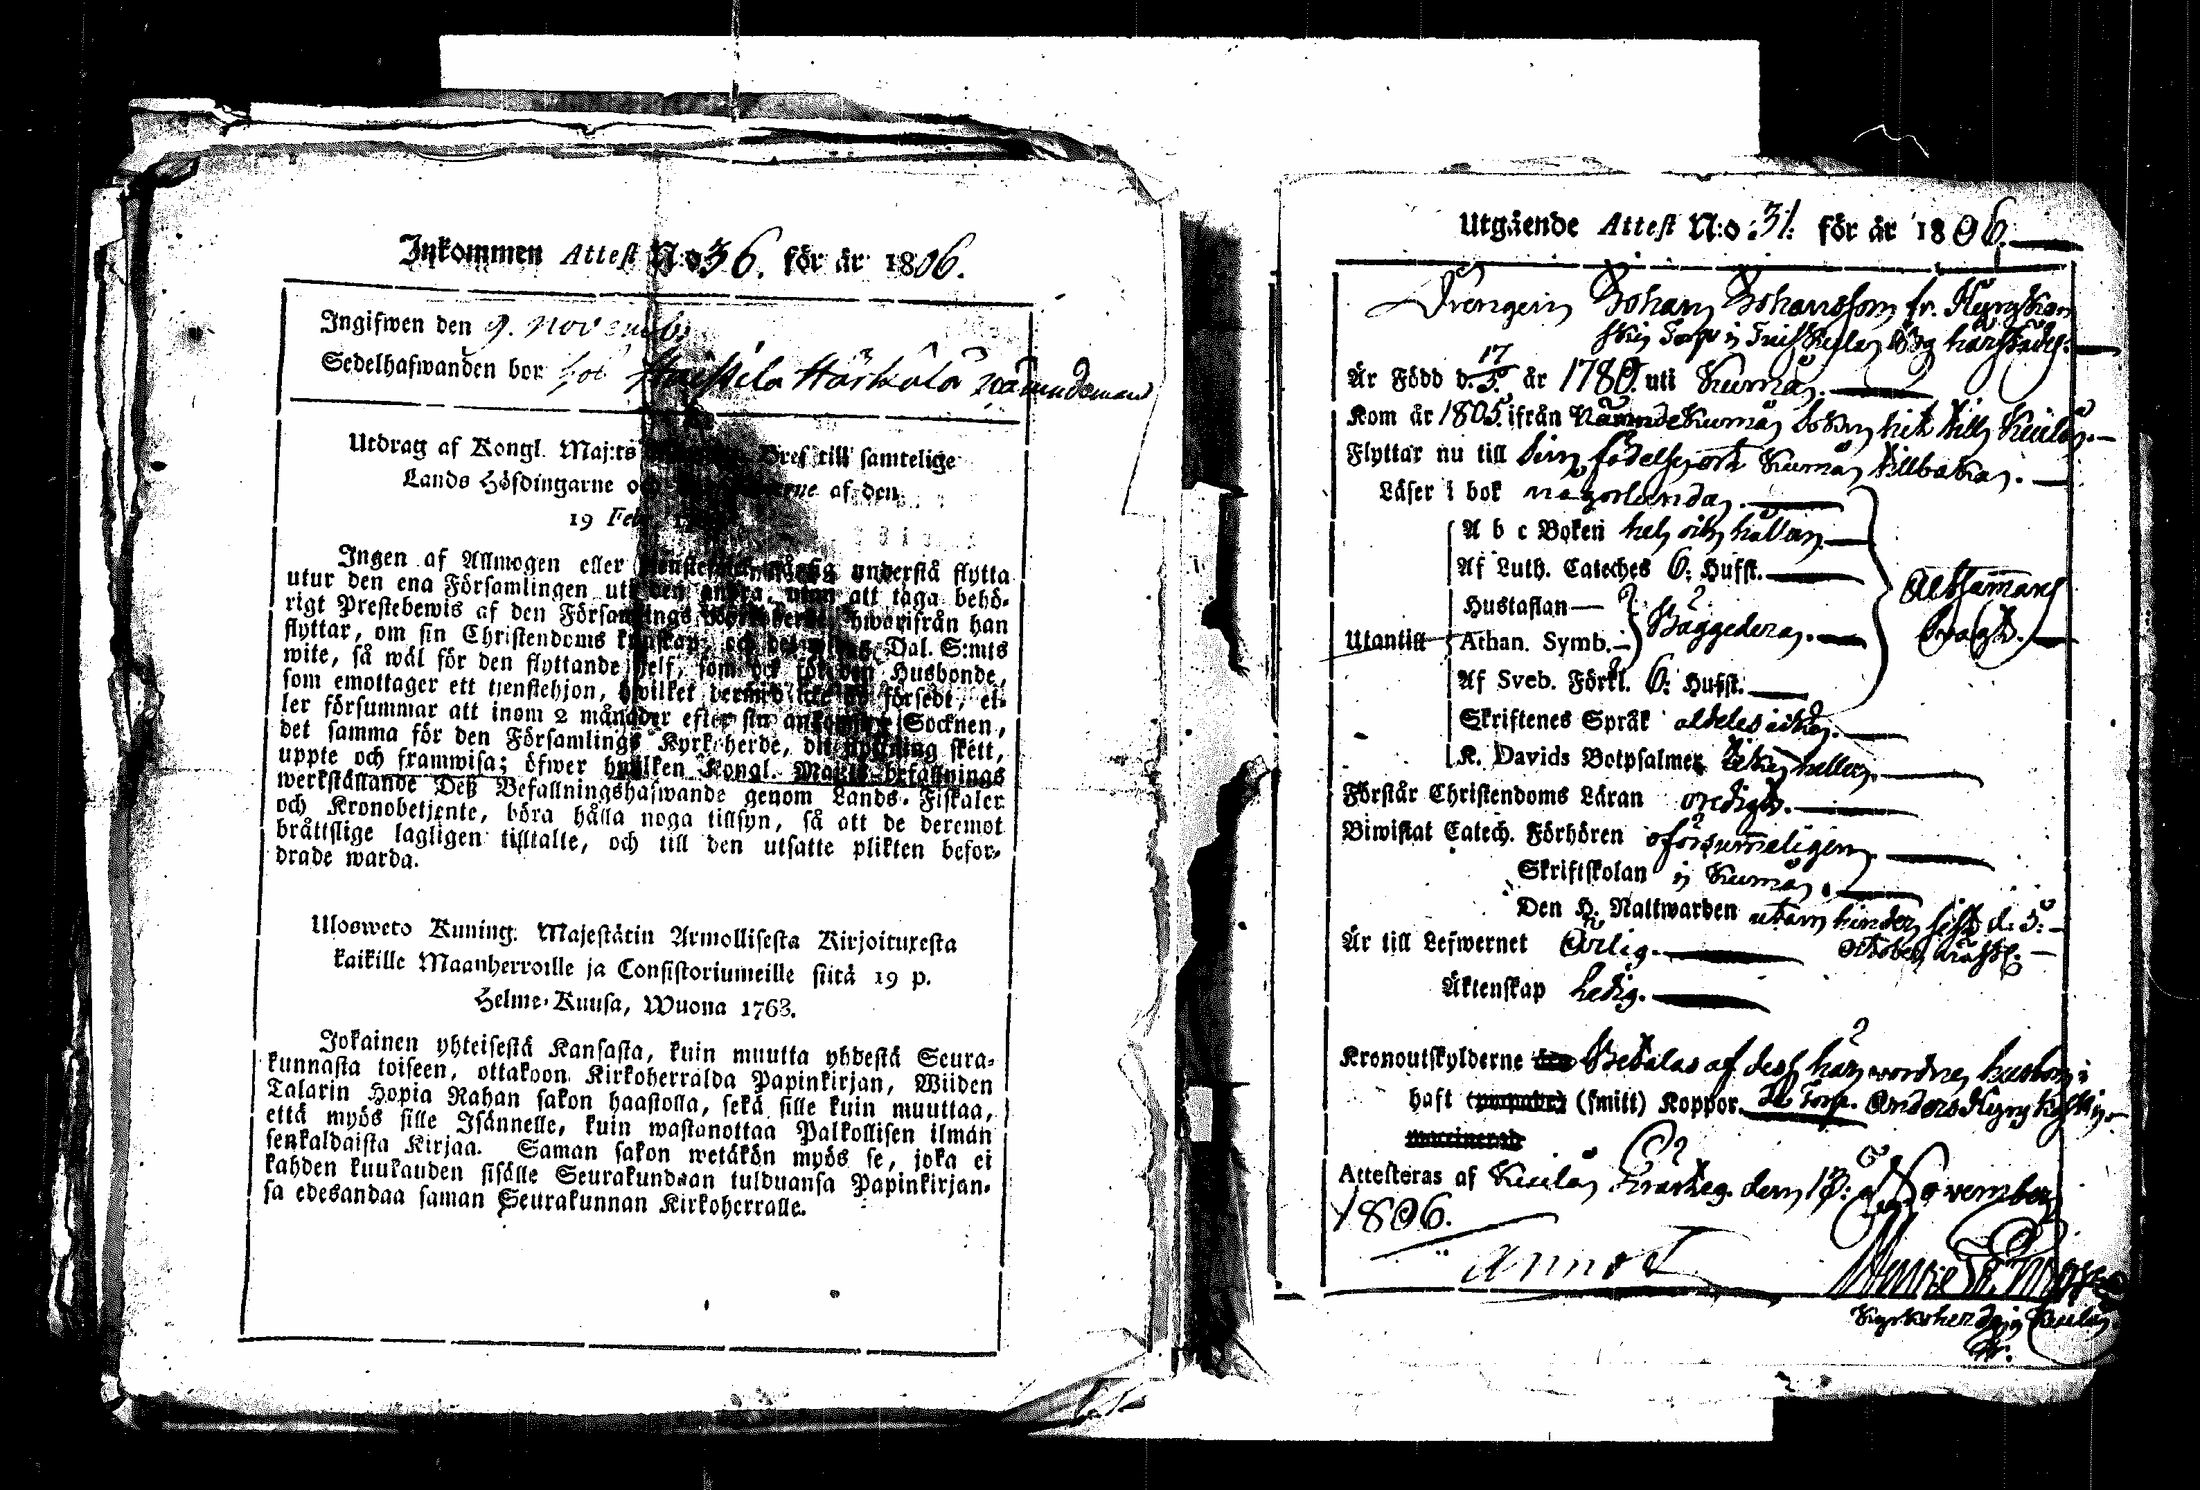 Inkommen Attest N:o 36. för år 1806.
Ingifwen den 9. Novemb.
Sedelhafwanden bor hos Härkälä nämndeman
Utdrag af Kongl. Maj:ts Bref till samtelige
Lands Höfdingarne och af den
19 Feb.
Ingen af Allmogen eller understå flytta
utur den ena Församlingen uti den andra, utan att taga behö-
rigt Prestebewis af den Församlings hwarifrån han
flyttar, om sin Christendoms kunskap, och Dal. S:mts
wite, så wäl för den flyttande sjelf, som ock för den Husbonde,
som emottager ett tienstehjon, hwilket försedt, el-
ler försummar att inom 2 månader efter sin ankomst Socknen,
det samma för den Församlings Kyrkoherde, dit flyttning skett,
uppte och framwisa; öfwer hwilken Kongl. Maj:ts befallnings
werkställande Deß Befallningshafwande genom Lands-Fiskaler
och Kronobetjente, böra hålla noga tillsyn, så att de deremot
bråttslige lagligen tilltalte, och till den utsatte plikten befor-
drade warda.
Ulosweto Kuning. Majestätin Armollisesta Kirjoituxesta
kaikille Maanherroille ja Consistoriumeille siitä 19 p.
Helme-Kuusa, Wuona 1763.
Jokainen yhteisestä Kansasta, kuin muutta yhdestä Seura-
kunnasta toiseen, ottakoon Kirkoherralda Papinkirjan, Wiiden
Talarin Hopia Rahan sakon haastolla, sekä sille kuin muuttaa,
että myös sille Isännelle, kuin wastanottaa Palkollisen ilman
senkaldaista Kirjaa. Saman sakon wetäkön myös se, joka ei
kahden kuukauden sisälle Seurakundaan tulduansa Papinkirjan-
sa edesandaa saman Seurakunnan Kirkoherralle.
Utgäende Attest N:o 31. för år 1806.
Drengen Johan Johansson fr.
Torp i
Är Född d. 17/5. år 1780. uti Kumå.
Kom år 1805. ifrån Nämnde Kumå Sokn hit till Kiulå.
Flyttar nu till sin födelseort Kumå tillbaka.
Läser i bok någorlunda.
A b c Boken hel och hållen.
Af Luth. Cateches 6: Hufst.
Hustaflan—
Utantill Athan. Symb.— Bäggedera.
Af Sveb. Förkl. 6: Hufst.
Skriftenes Språk aldeles icke.
K. Davids Botpsalmer icke heller.
Alltsammans
Förstår Christendoms Läran
Biwistat Catech. Förhören oförsummeligen.
Skriftskolan i Kumå.
Den H. Nattwarden utan hinder sist d. 5:
Är till Lefwernet Ärlig. October
Äktenskap ledig.
Kronoutskylderne Betalas af dess här wordne husbon:
haft (smitt) Koppor. Torp. Anders
Attesteras af Kiulå d. 13: November
1806.
Kyrkoherde i Kiulo